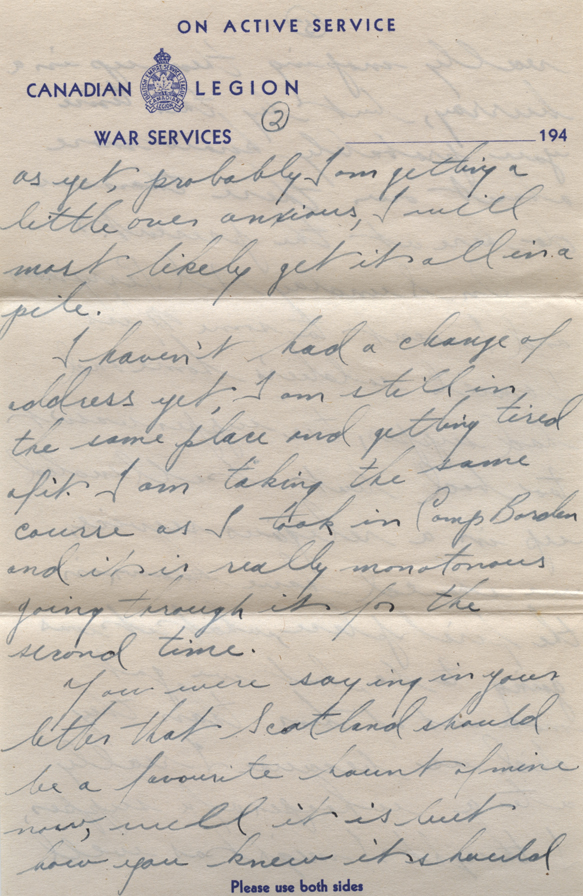 ON ACTIVE SERVICE
CANADIAN LEGION
WAR SERVICES
194
2
as yet, probably I am getting a
little over anxious, I will
most likely get it all in a
pile.
I haven't had a change of
address yet, I am still in
the same place and getting tired
of it. I am taking the same
course as I took in Camp Borden
and it is really monotonous
going through it for the
second time.
You were saying in your
letter that Scotland should
be a favourite haunt of mine
now, well it is but
how you knew it should
Please use both sides